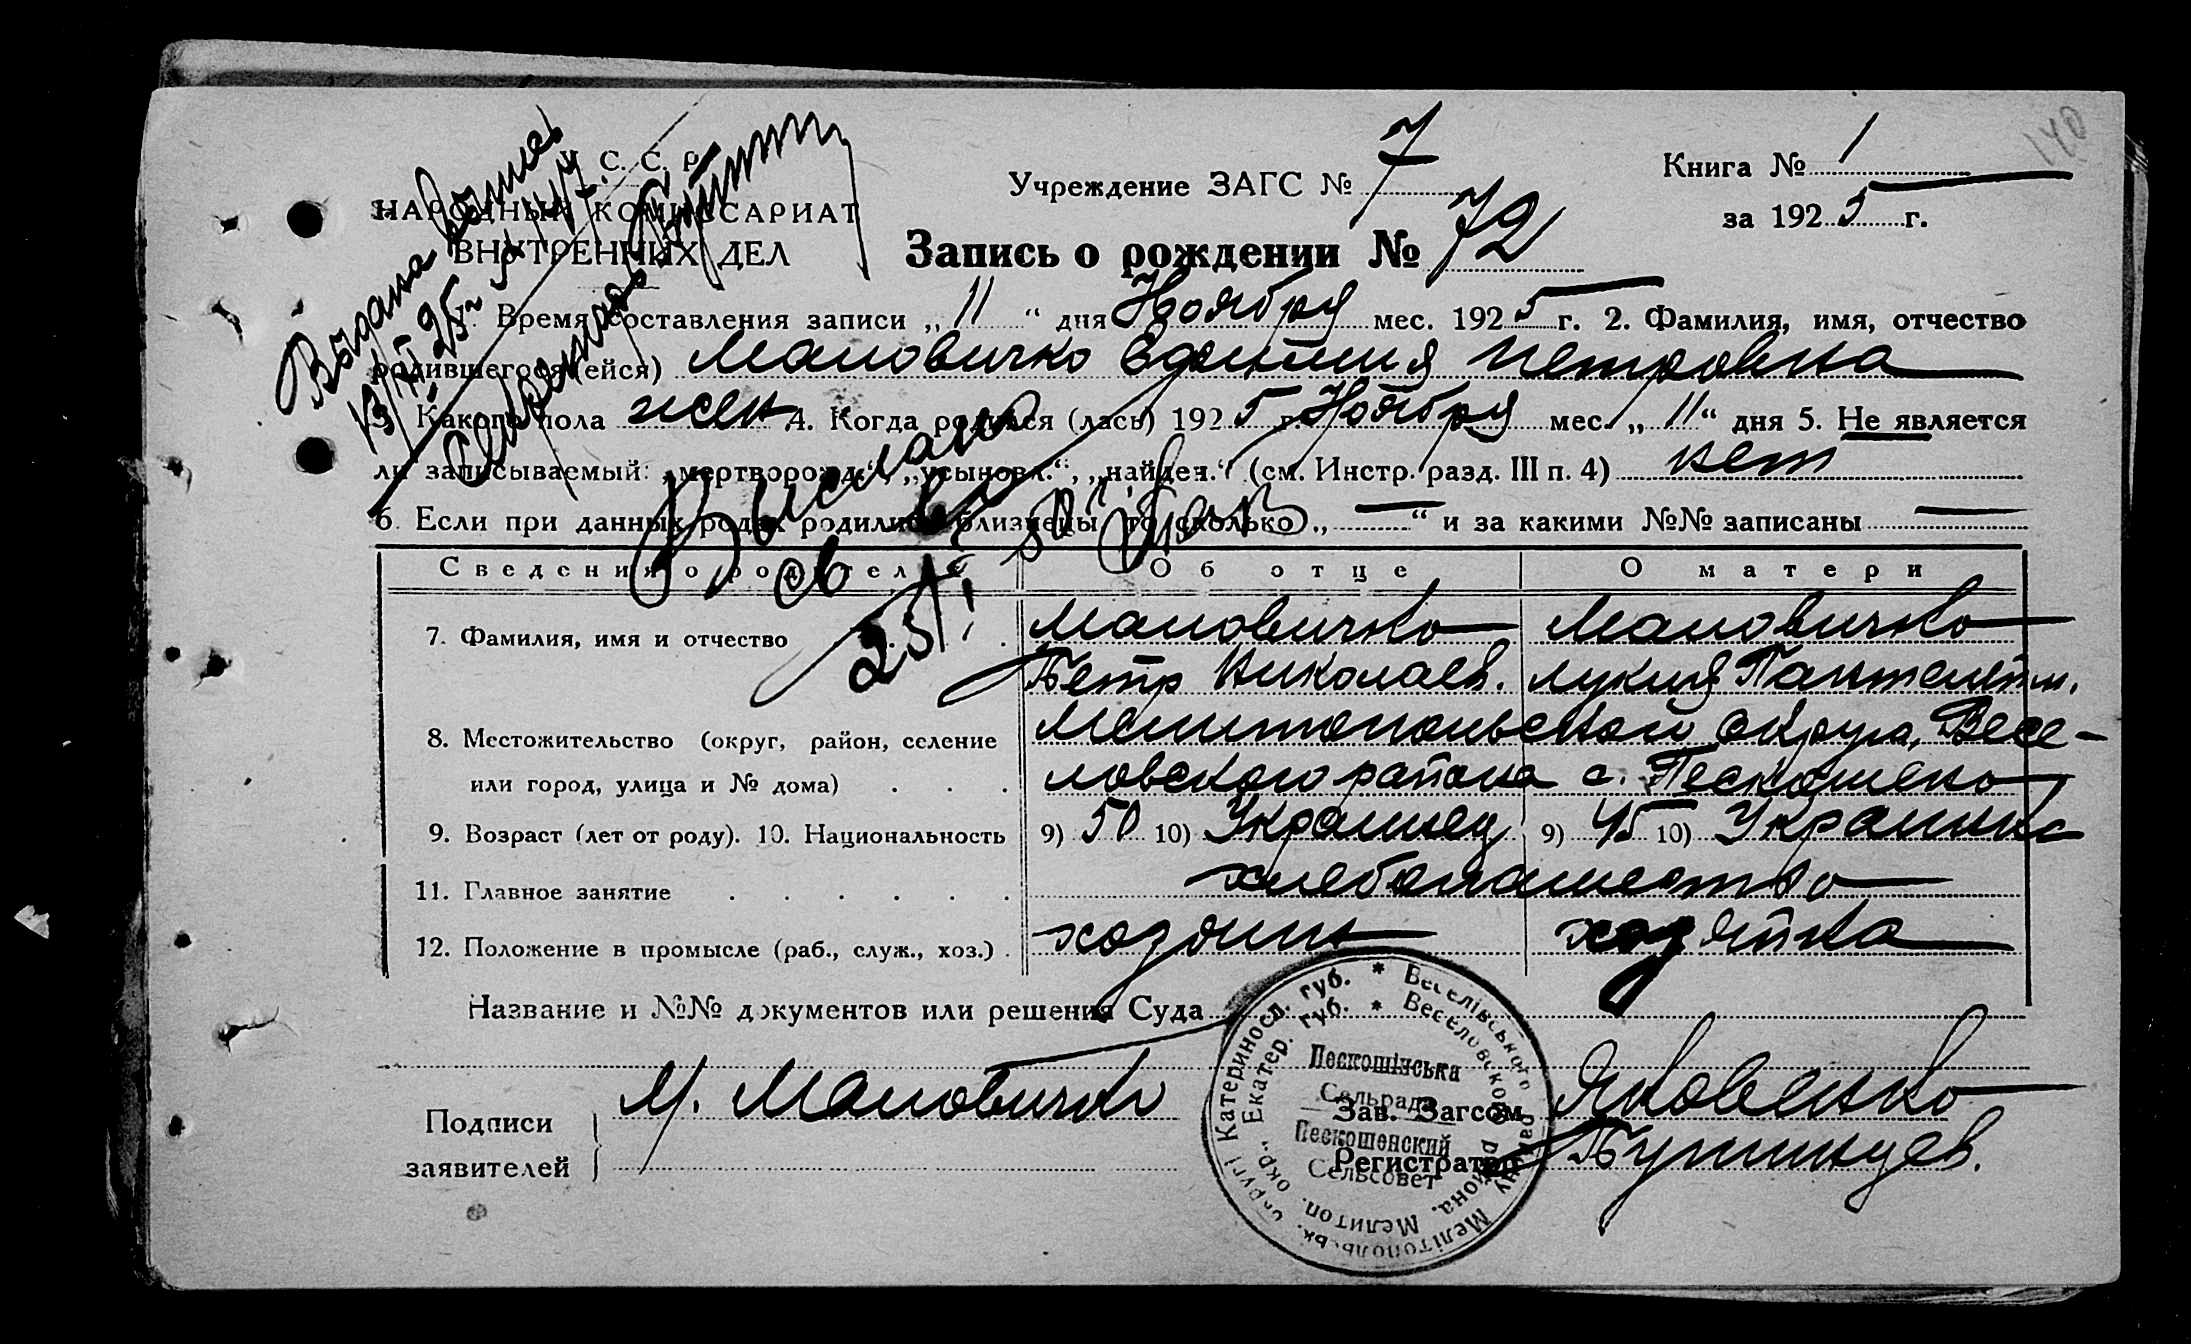 У. С. С. Р.
НАРОДНЫЙ КОМИССАРИАТ
ВНУТРЕННИХ ДЕЛ
Учреждение ЗАГС № 7
Книга № 1
140
за 1925 г.
Запись о рождении № 72
1. Время составления записи „11“ дня Ноября мес. 1925 г. 2. Фамилия, имя, отчество
родившегося (ейся) Мановичко Петровна
3. Какого пола жен 4. Когда родился (лась) 1925 г. Ноября мес. „11“ дня 5. Не является
ли записываемый: „мертворожд.“, „усыновл.“, „найден.“ (см. Инстр. разд. III п. 4) нет
6. Если при данных родах родились близнецы, то сколько „—“ и за какими №№ записаны —
Выдана
Выслано
Сведения о родителях
Об отце
О матери
7. Фамилия, имя и отчество Мановичко Мановичко
Петр Николаев. Лукия Пантелейм.
8. Местожительство (округ, район, селение Мелитопольского округа, Весе-
или город, улица и № дома) ловского района с. Пескошено
9. Возраст (лет от роду). 10. Национальность 9) 50 10) Украинец 9) 45 10) Украинка
11. Главное занятие хлебопашество
12. Положение в промысле (раб., служ., хоз.) хозяин хозяйка
Название и №№ документов или решения Суда
Подписи
заявителей
М. Мановичко
Зав. Загсом Яковенко
Регистратор
Катериносл. губ. * Веселівського району Мелітопольськ. округі
Екатер. губ. * Веселовского района. Мелитоп. окр.
Пескошінська
Сельрада
Пескошенский
Сельсовет